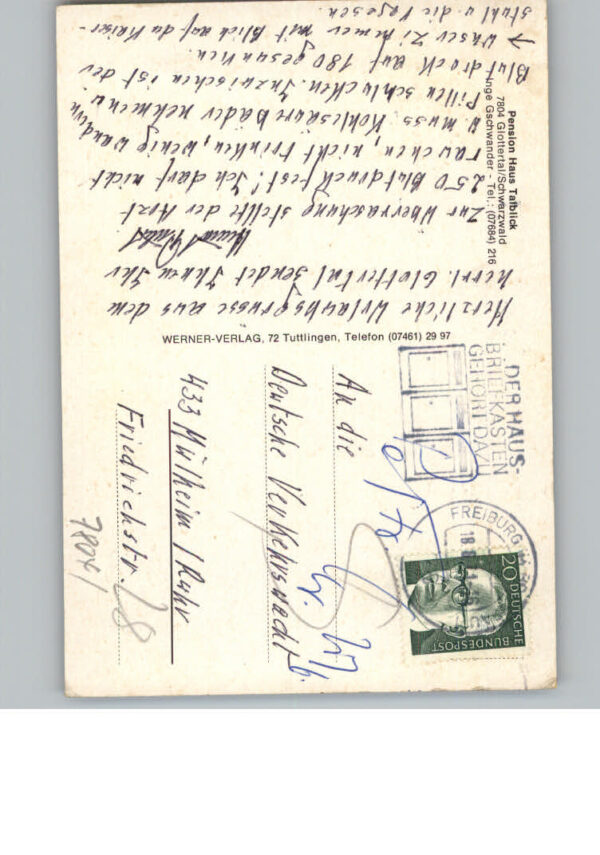 Pension Haus Talblick
7804 Glottertal/Schwarzwald
Inge Gschwander - Tel.: (07684) 216
Herzliche Urlaubsgrüsse aus dem
herrl. Glottertal sendet Ihnen Ihr
Zur Überraschung stellte der Arzt
250 Blutdruck fest! Ich darf nicht
rauchen, nicht trinken, wenig wandern
u. muss Kohlesäurebäder nehmen u.
Pillen schlucken. Inzwischen ist der
Blutdruck auf 180 gesunken.
→ Unser Zimmer mit Blick auf du Kaiser-
stuhl u. die Vogesen.
WERNER-VERLAG, 72 Tuttlingen, Telefon (07461) 29 97
DER HAUS-
BRIEFKASTEN
GEHÖRT DAZU
FREIBURG IM
20 DEUTSCHE
BUNDESPOST
An die
Deutsche Verkehrswacht
433 Mülheim / Ruhr
Friedrichstr. 28